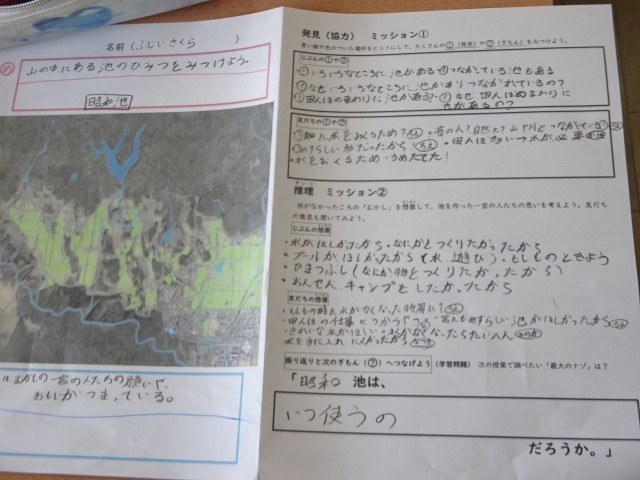 名前(ふじいさくら )
め
山の中にある池のひみつをみつけよう。
昭和池
むかしの一宮の人たちの願いや、
おもいがつまっている。
発見(協力) ミッション①
青い線や色のついた場所をヒントにして、たくさんの!(発見)や?(ぎもん)をみつけよう。
じぶんの!や?
!いろいろなところに池がある !つながっている池もある
?なぜいろいろなところに池があまりつながれているの?
!田んぼのまわりに池がある ?なぜ田んぼのまわりに
池があるの?
友だちの!や?
・めずらしい形だったから!
・田んぼは多い→水が必要
・水をおくるため
推理 ミッション②
すいり
池がなかったころの「むかし」を想像して、池を作った一宮の人たちの思いを考えよう。友だち
の意見も聞いてみよう。
じぶんの想像
・水がほしかったから・なにかをつくりたかったから
・プールがほしかったから(水遊び)・もしものときよう
・ひまつぶし(なにか物をつくりたかったから)
・おんせん、キャンプをしたかったから
友だちの想像
・もしもの時に水がなくなった時用に?
・田んぼの仕事につかう
めずらしい池がほしかったから
・きれいな水がほしい・水がなくなったらたいへん
水を手に入れたかったから
振り返りと次のぎもん(?)へつなげよう (学習問題) 次の授業で調べたい「最大のナゾ」は?
「昭和 池は、
いつ使うの
だろうか。」